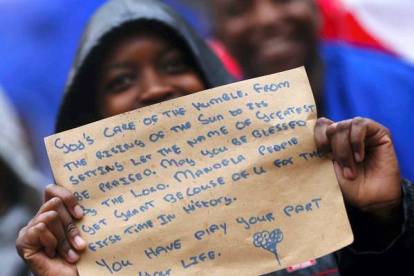 God's Care of the Humble. From
the rising of the Sun to its
setting let the name of greatest
be praised. May you be blessed
by the Lord. Mandela people
got grant because of u for the
first time in history.
You have play your part
in your life.